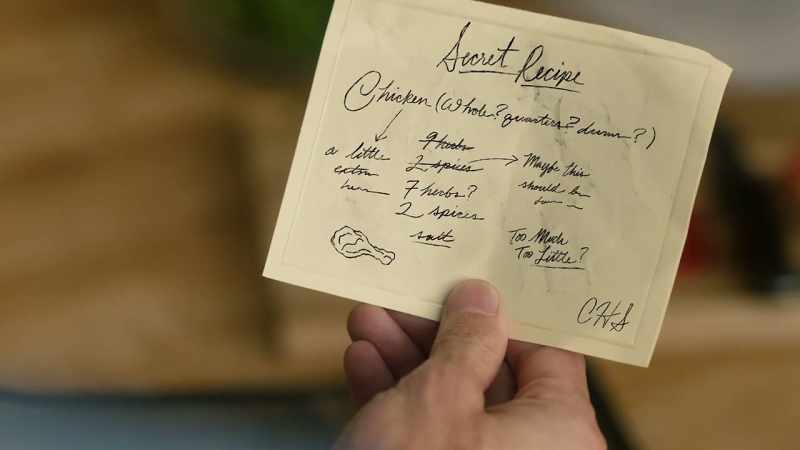 Secret Recipe
Chicken (Whole? quarters? drums?)
a little
9 herbs
2 spices
7 herbs?
2 spices
salt
Maybe this
should be
Too Much
Too Little?
CHS